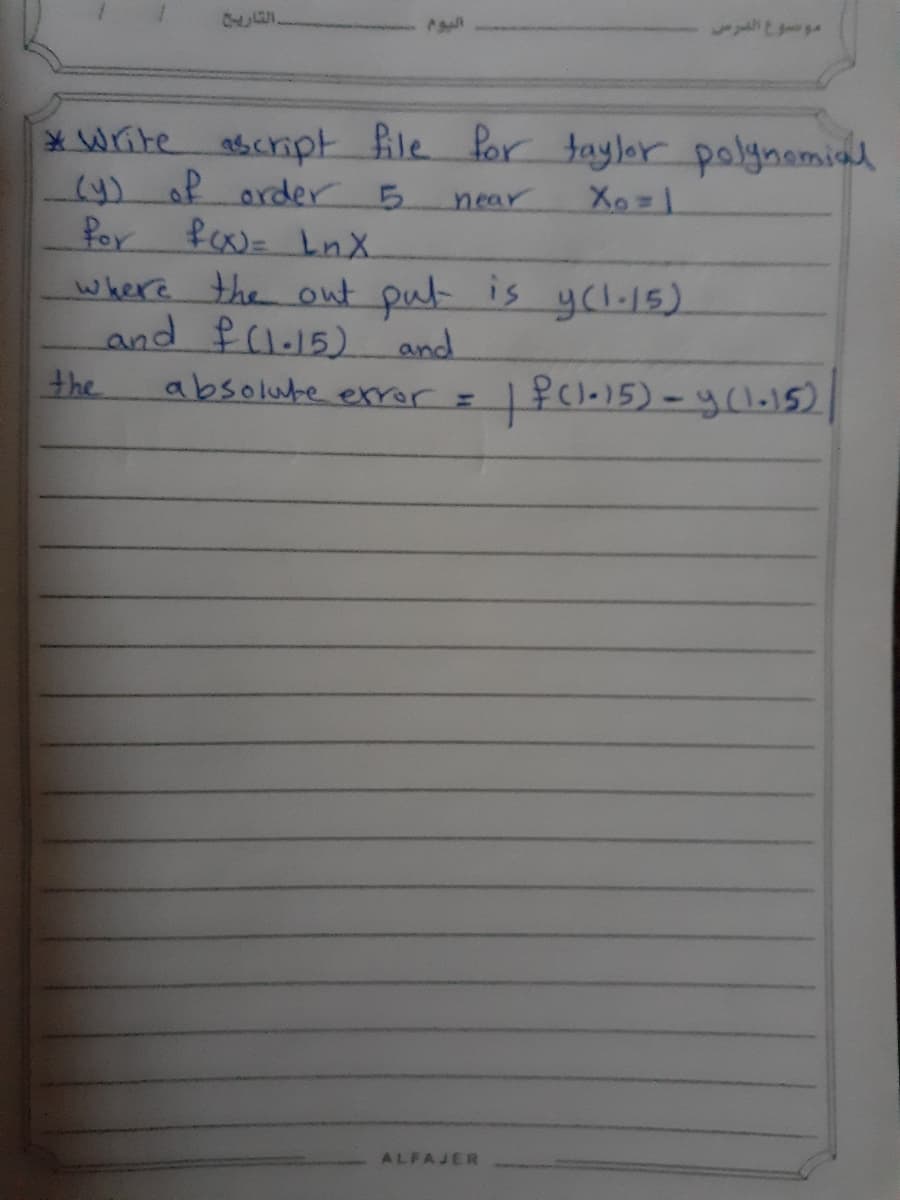 موضوع الدرس اليوم التاريخ / /
* Write ascript file for taylor polynomial
(y) of order 5 near X₀ = 1
for f(x) = LnX
where the out put is y(1.15)
and f(1.15) and
the absolute error = | f(1.15) - y(1.15) |
ALFAJER